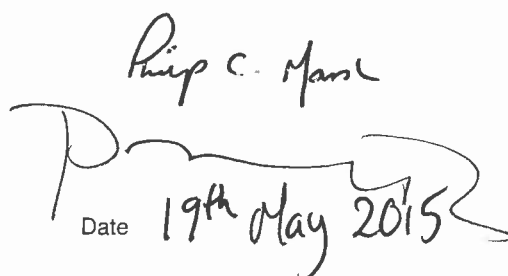 Philip C. Marsh
Date 19th May 2015